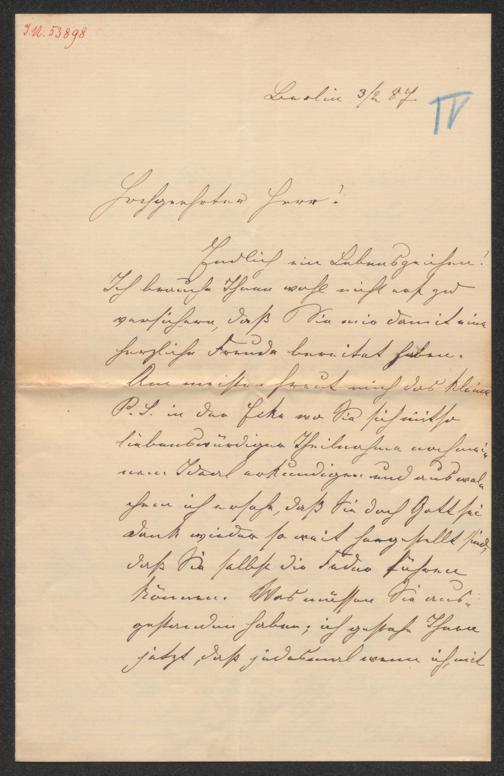 J.N. 53898
Berlin 3/2 87
IV
Hochgeehrter Herr!
Endlich ein Lebenszeichen!
Ich brauche Ihnen wohl nicht erst zu
versichern, daß Sie mir damit eine
herzliche Freude bereitet haben.
Am meisten freut mich das kleine
P.S. in der Ecke wo Sie sich mit so
liebenswürdiger Theilnahme nach mei-
nem Ideal erkundigen und aus wel-
chem ich ersehe, daß Sie doch Gott sei
Dank wieder so weit hergestellt sind,
daß Sie selbst die Feder führen
können. Was müssen Sie aus-
gestanden haben; ich gestehe Ihnen
jetzt, daß jedesmal wenn ich mit